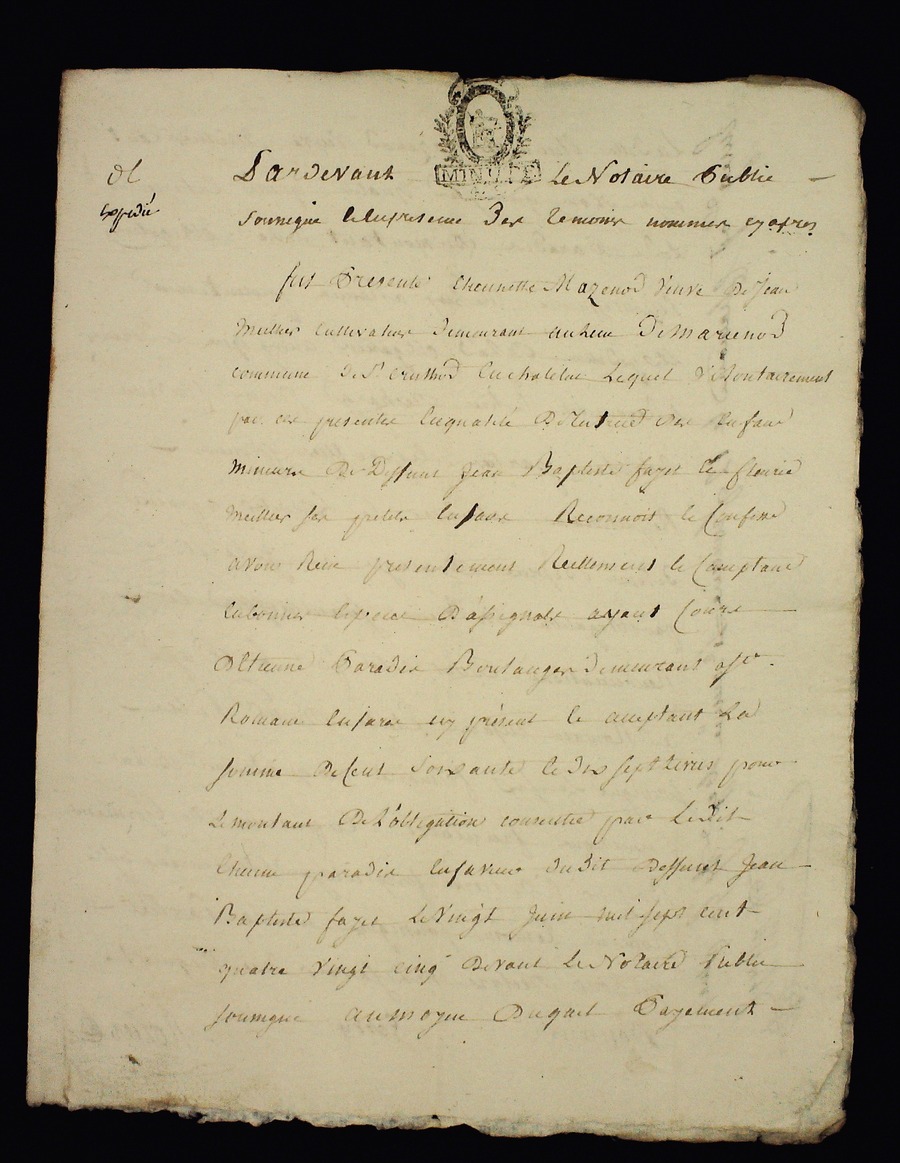 MINUTE
Pardevant Le Notaire Publie
expedié
Soussigné et En presence Des temoins nommes cy apres
fut Presente Mazenod Veuve De Jean
Meiller Cultivateur Demeurant au Lieu De Marienod
commune De St Lequel Volontairement
par ces presentes En qualité De des Enfans
mineurs De Deffunt Jean Baptiste fayet et fleurie
Meiller ses petits Enfans Reconnoit et Confesse
avoir Recu presentement Reellement et Comptant
En bonnes Espece D'assignats ayant Cours
D'Etienne Paradis Boulanger Demeurant a St
Romain En Jarez cy présent et acceptant La
somme De Cent Soixante et Dix sept Livres pour
Le montant De L'obligation consentie par Ledit
Etienne paradis En faveur Dudit Deffunt Jean
Baptiste fayet Le Vingt Juin mil sept cent
quatre Vingt cinq Devant Le Notaire Publie
soussigné au moyen Duquel Payement